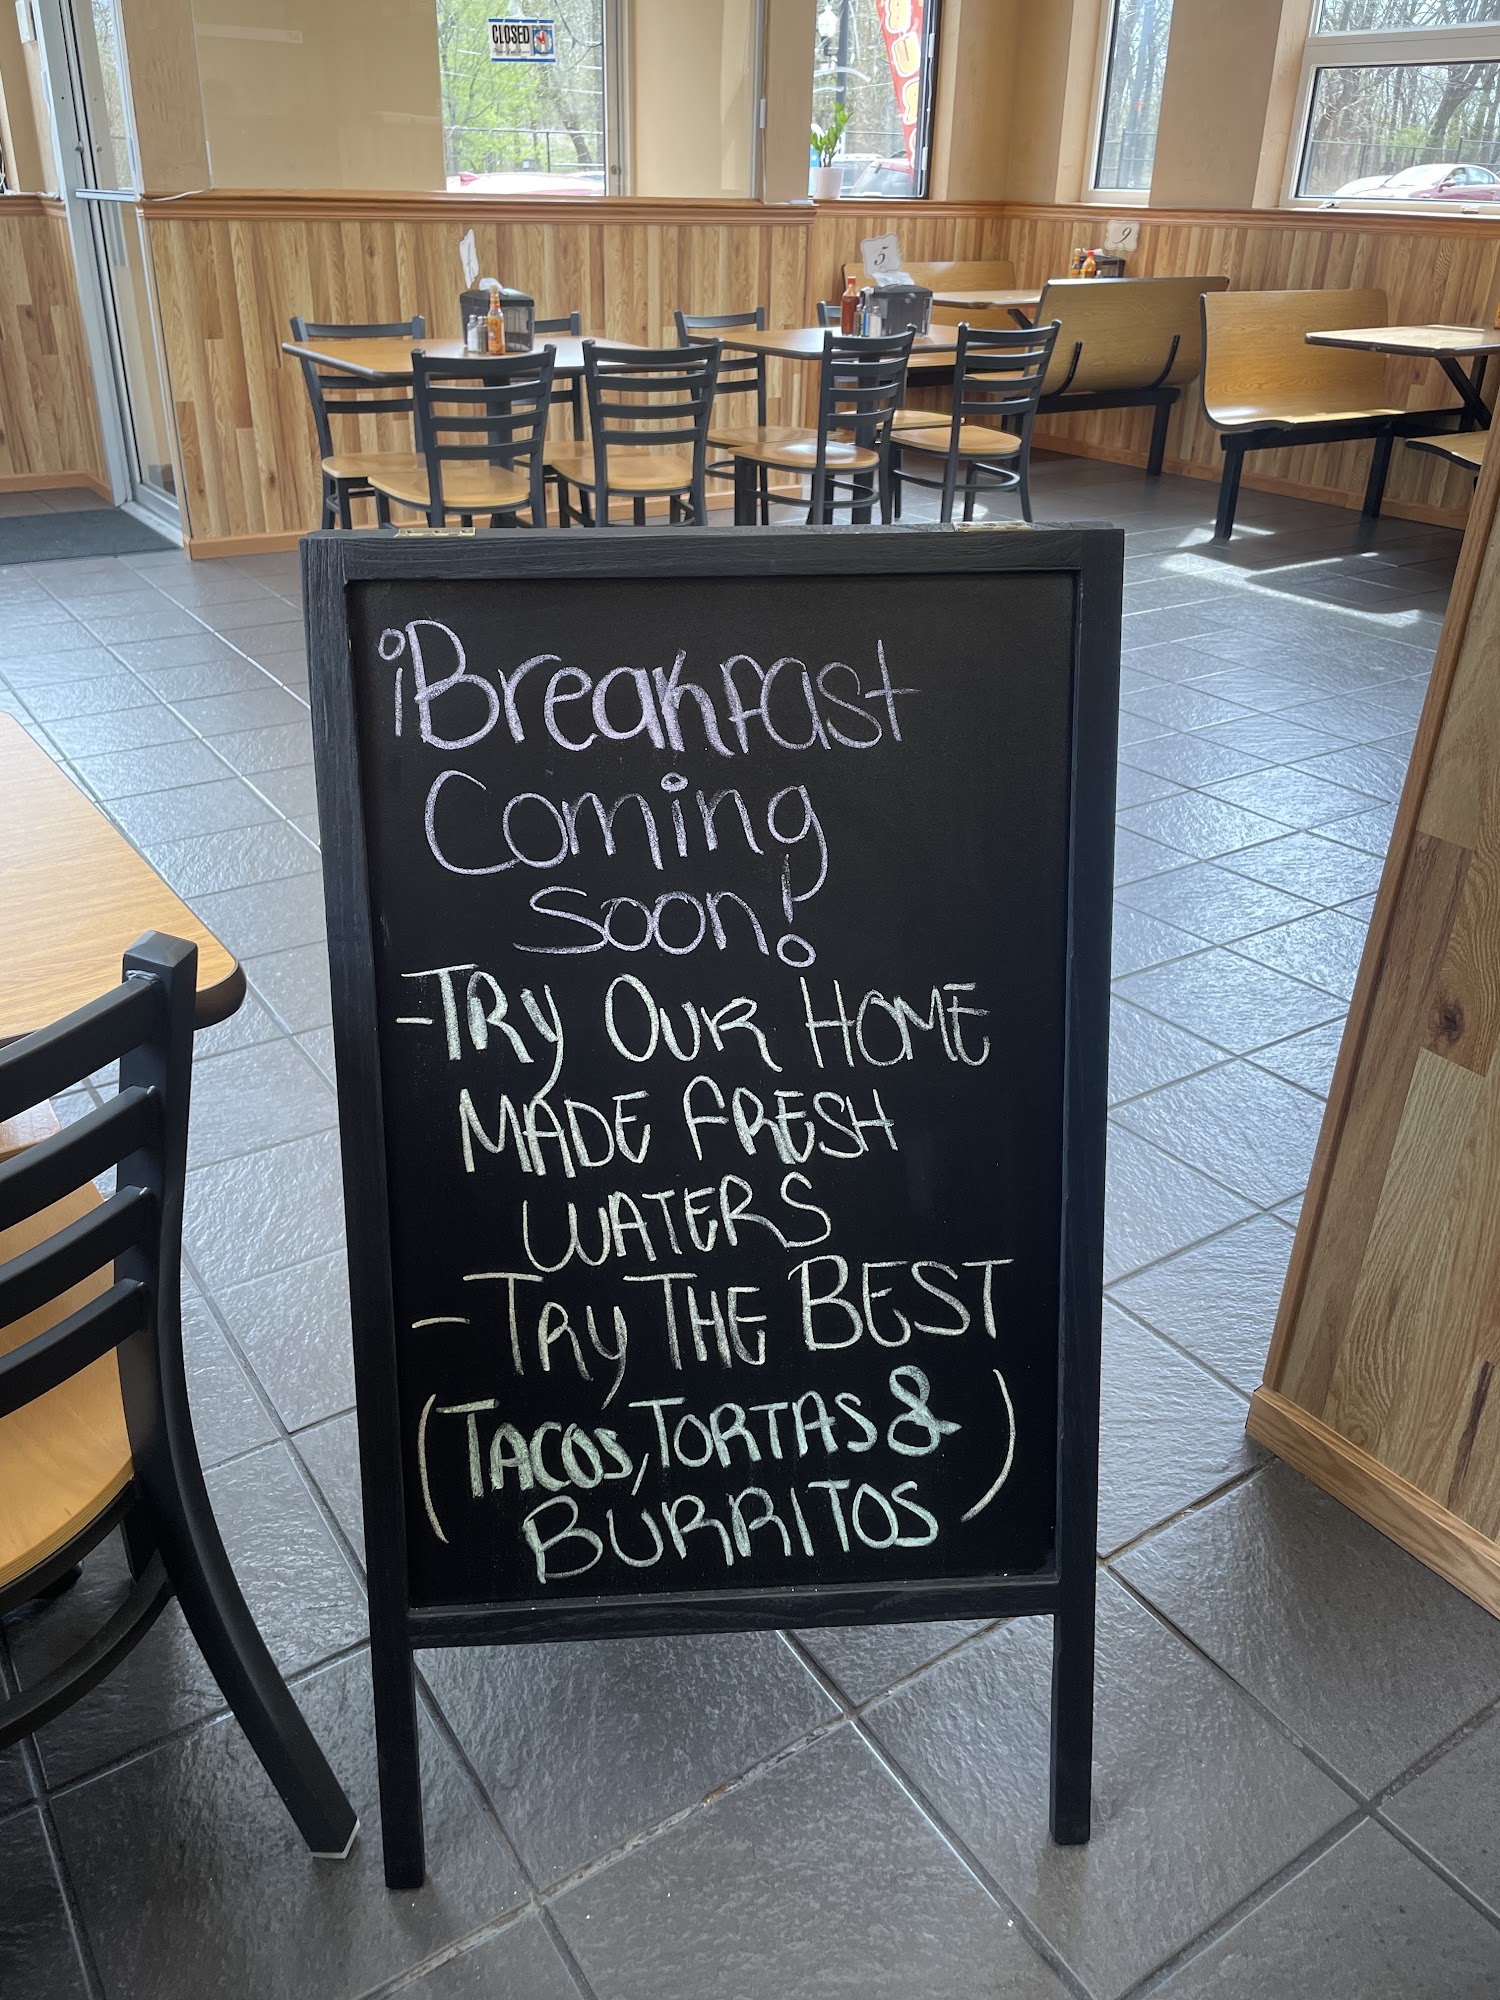 CLOSED
1
5
9
¡Breakfast
Coming
Soon!
-TRY OUR HOME
MADE FRESH
WATERS
-TRY THE BEST
(TACOS, TORTAS & )
BURRITOS